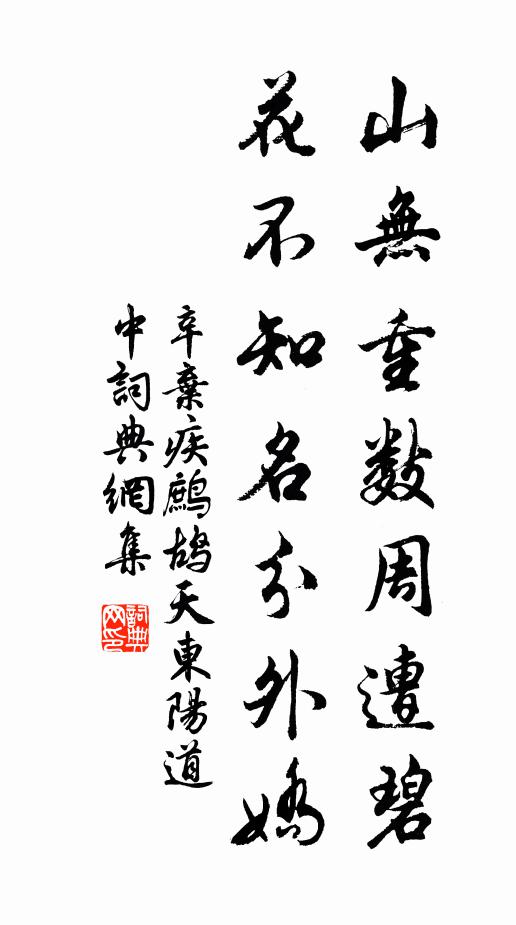 山無重數周遭碧
花不知名分外嬌
辛棄疾鷓鴣天東陽道
中詞典網集
詞典
网印